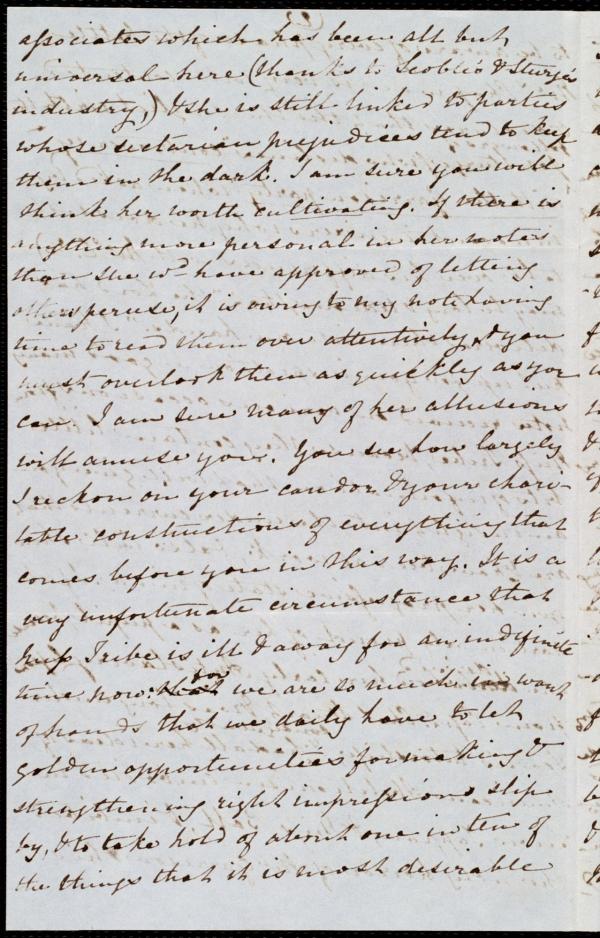 associates which has been all but
universal here (thanks to Scoble's & Sturge's
industry,) & she is still linked to parties
whose sectarian prejudices tend to keep
them in the dark. I am sure you will
think her worth cultivating. If there is
anything more personal in her notes
than she wd have approved of letting
others peruse, it is owing to my not having
time to read them over attentively, & you
must overlook them as quickly as you
can. I am sure many of her allusions
will amuse you. You see how largely
I reckon on your candor & your chari-
table constructions of everything that
comes before you in this way. It is a
very unfortunate circumstance that
Miss Tribe is ill & away for an indefinite
time now: for we are so much in want
of hands that we daily have to let
golden opportunities for making &
strengthening right impressions slip
by, & to take hold of about one in ten of
the things that it is most desirable